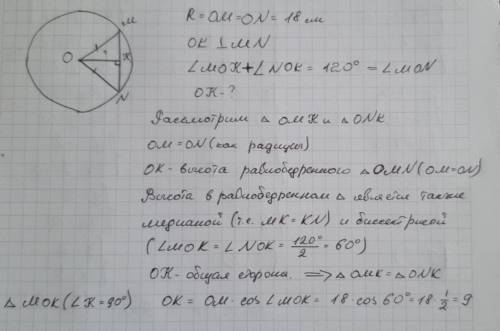 M
O
K
N
R = OM = ON = 18 см
OK ⊥ MN
∠MOK + ∠NOK = 120° = ∠MON
OK - ?
Рассмотрим △ OMK и △ ONK
OM = ON (как радиусы)
OK - высота равнобедренного △ OMN (OM = ON)
Высота в равнобедренном △ является также
медианой (т.е. MK = KN) и биссектрисой
(∠MOK = ∠NOK = 120°/2 = 60°)
OK - общая сторона. ⟹ △ OMK = △ ONK
△ MOK (∠K = 90°) OK = OM · cos ∠MOK = 18 · cos 60° = 18 · 1/2 = 9